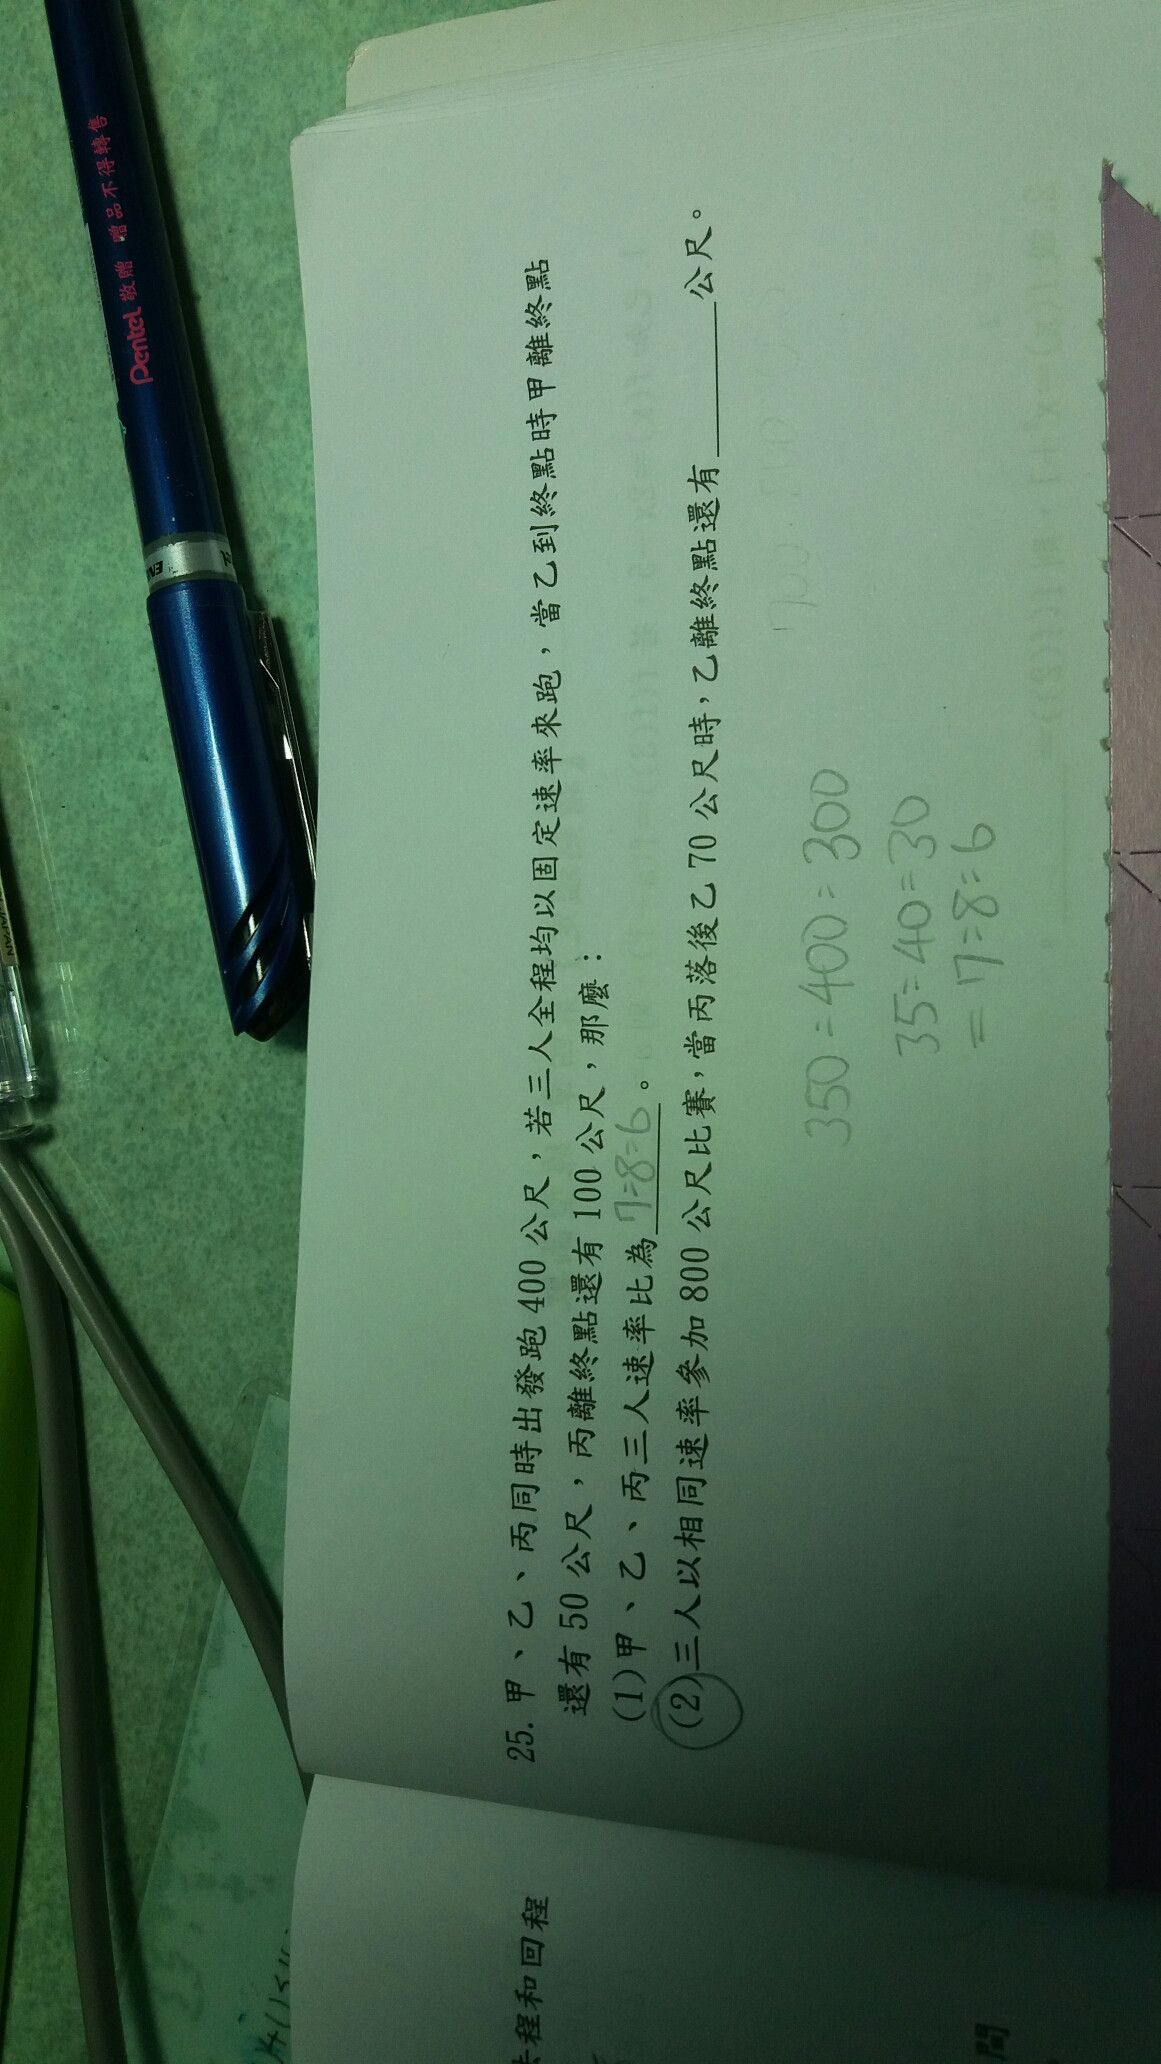 25. 甲、乙、丙同時出發跑 400 公尺，若三人全程均以固定速率來跑，當乙到終點時甲離終點
還有 50 公尺，丙離終點還有 100 公尺，那麼：
(1)甲、乙、丙三人速率比為 7:8:6 。
(2)三人以相同速率參加 800 公尺比賽，當丙落後乙 70 公尺時，乙離終點還有 公尺。
350:400:300
35:40:30
=7:8:6
程和回程
問
Pentel 敬贈 贈品不得轉售
JAPAN